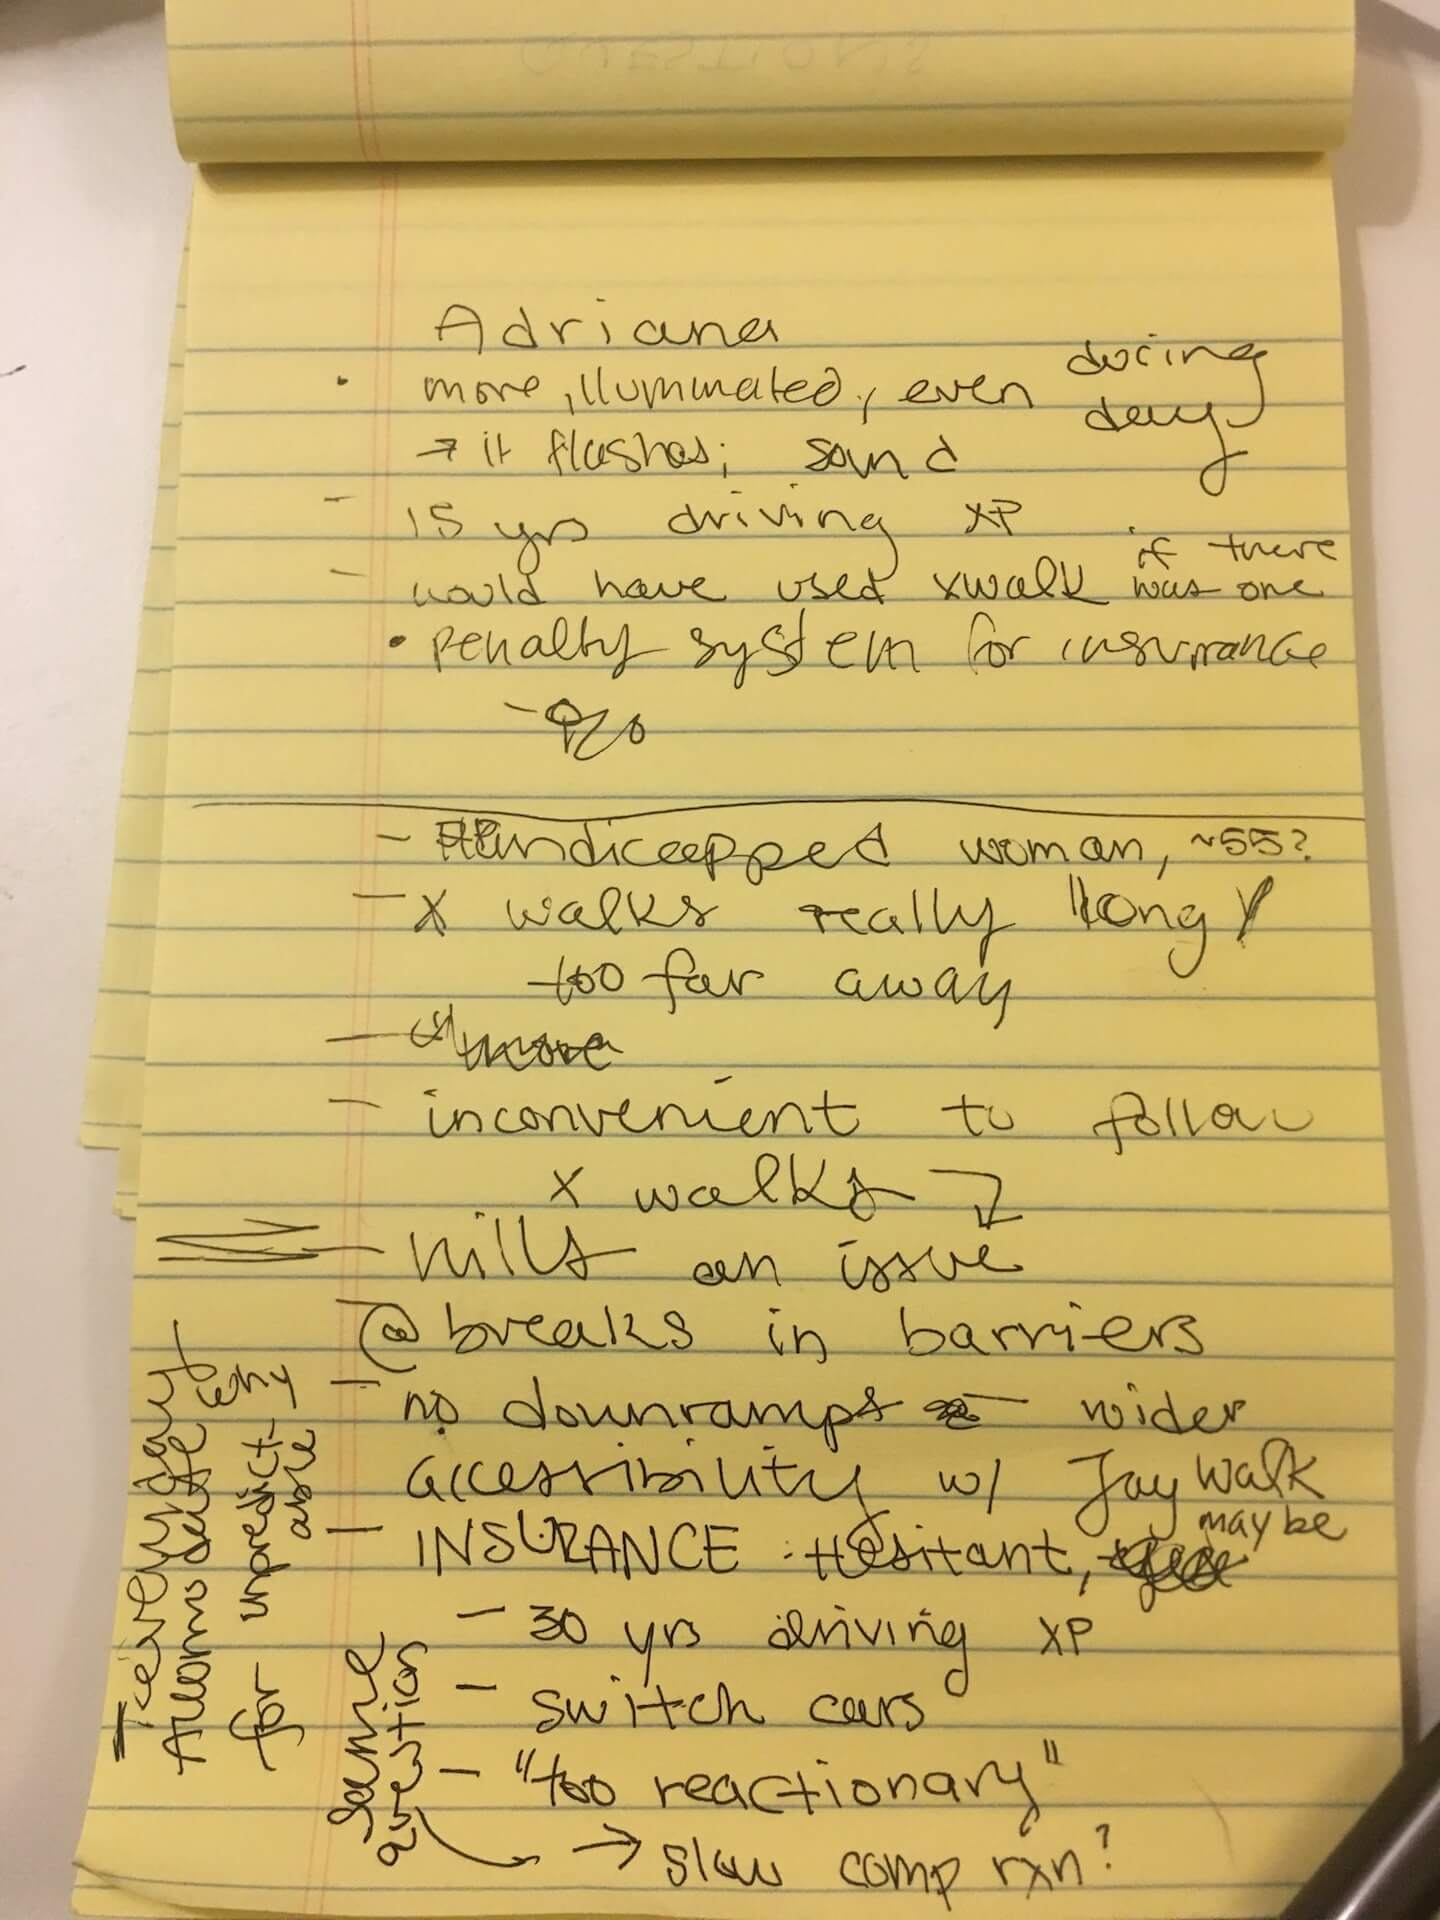 QUESTIONS
Adriana
• more illuminated, even during day
→ it flashes; sound
- 15 yrs driving XP
- would have used xwalk if there was one
• penalty system for insurance
- Handicapped woman, ~55?
- X walks really long
too far away
- more
- inconvenient to follow
X walks
- hills an issue
- @ breaks in barriers
- no downramps - wider
accessibility w/ Jay walk
- INSURANCE: Hesitant, maybe
- 30 yrs driving XP
- switch cars
- "too reactionary"
→ slow comp rxn?
why
for unpredict-
able
same
question